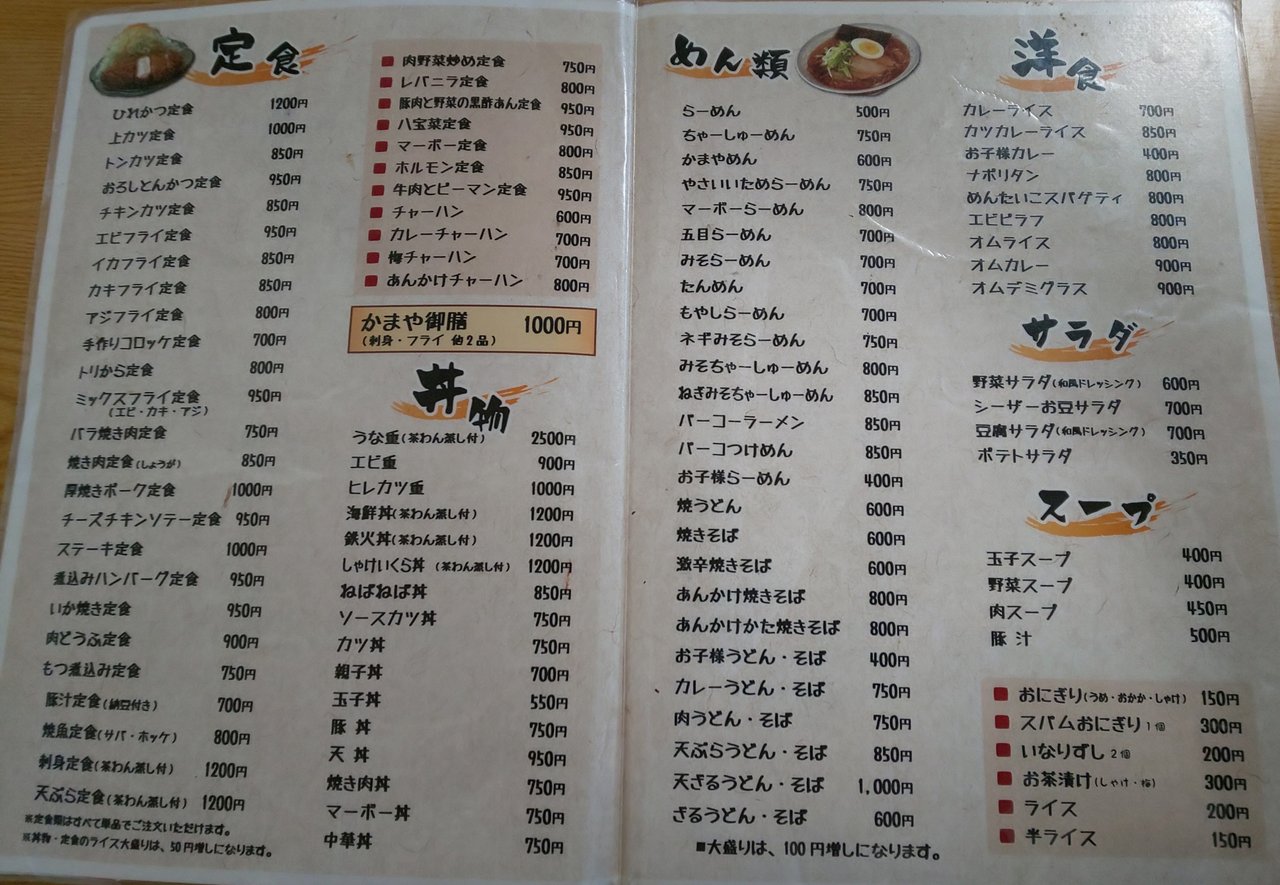 定食
ひれかつ定食 1200円
上カツ定食 1000円
トンカツ定食 850円
おろしとんかつ定食 950円
チキンカツ定食 850円
エビフライ定食 950円
イカフライ定食 850円
カキフライ定食 850円
アジフライ定食 800円
手作りコロッケ定食 700円
トリから定食 800円
ミックスフライ定食 950円
(エビ・カキ・アジ)
バラ焼き肉定食 750円
焼き肉定食(しょうが) 850円
厚焼きポーク定食 1000円
チーズチキンソテー定食 950円
ステーキ定食 1000円
煮込みハンバーグ定食 950円
いか焼き定食 950円
肉どうふ定食 900円
もつ煮込み定食 750円
豚汁定食(納豆付き) 700円
焼魚定食(サバ・ホッケ) 800円
刺身定食(茶わん蒸し付) 1200円
天ぷら定食(茶わん蒸し付) 1200円
※定食類はすべて単品でご注文いただけます。
※丼物・定食のライス大盛りは、50円増しになります。
■ 肉野菜炒め定食 750円
■ レバニラ定食 800円
■ 豚肉と野菜の黒酢あん定食 950円
■ 八宝菜定食 950円
■ マーボー定食 800円
■ ホルモン定食 850円
■ 牛肉とピーマン定食 950円
■ チャーハン 600円
■ カレーチャーハン 700円
■ 梅チャーハン 700円
■ あんかけチャーハン 800円
かまや御膳 1000円
(刺身・フライ 他2品)
丼物
うな重(茶わん蒸し付) 2500円
エビ重 900円
ヒレカツ重 1000円
海鮮丼(茶わん蒸し付) 1200円
鉄火丼(茶わん蒸し付) 1200円
しゃけいくら丼 (茶わん蒸し付) 1200円
ねばねば丼 850円
ソースカツ丼 750円
カツ丼 750円
親子丼 700円
玉子丼 550円
豚丼 750円
天丼 950円
焼き肉丼 750円
マーボー丼 750円
中華丼 750円
めん類
らーめん 500円
ちゃーしゅーめん 750円
かまやめん 600円
やさいいためらーめん 750円
マーボーらーめん 800円
五目らーめん 700円
みそらーめん 700円
たんめん 700円
もやしらーめん 700円
ネギみそらーめん 750円
みそちゃーしゅーめん 800円
ねぎみそちゃーしゅーめん 850円
パーコーラーメン 850円
パーコつけめん 850円
お子様らーめん 400円
焼うどん 600円
焼きそば 600円
激辛焼きそば 600円
あんかけ焼きそば 800円
あんかけかた焼きそば 800円
お子様うどん・そば 400円
カレーうどん・そば 750円
肉うどん・そば 750円
天ぷらうどん・そば 850円
天ざるうどん・そば 1,000円
ざるうどん・そば 600円
■大盛りは、100円増しになります。
洋食
カレーライス 700円
カツカレーライス 850円
お子様カレー 400円
ナポリタン 800円
めんたいこスパゲティ 800円
エビピラフ 800円
オムライス 800円
オムカレー 900円
オムデミグラス 900円
サラダ
野菜サラダ(和風ドレッシング) 600円
シーザーお豆サラダ 700円
豆腐サラダ(和風ドレッシング) 700円
ポテトサラダ 350円
スープ
玉子スープ 400円
野菜スープ 400円
肉スープ 450円
豚汁 500円
■ おにぎり(うめ・おかか・しゃけ) 150円
■ スパムおにぎり1個 300円
■ いなりずし2個 200円
■ お茶漬け(しゃけ・梅) 300円
■ ライス 200円
■ 半ライス 150円